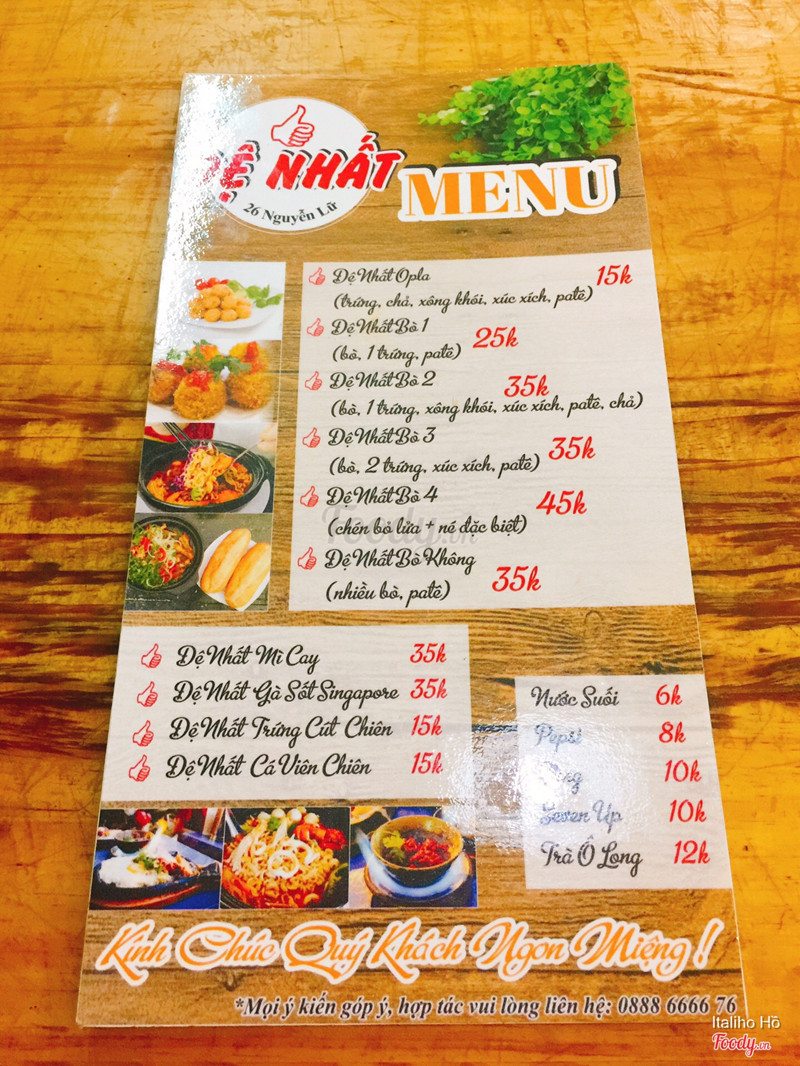 ĐỆ NHẤT
26 Nguyễn Lữ
MENU
Đệ Nhất Opla 15k
(trứng, chả, xông khói, xúc xích, patê)
Đệ Nhất Bò 1 25k
(bò, 1 trứng, patê)
Đệ Nhất Bò 2 35k
(bò, 1 trứng, xông khói, xúc xích, patê, chả)
Đệ Nhất Bò 3 35k
(bò, 2 trứng, xúc xích, patê)
Đệ Nhất Bò 4 45k
(chén bò lửa + né đặc biệt)
Đệ Nhất Bò Không 35k
(nhiều bò, patê)
Đệ Nhất Mì Cay 35k
Đệ Nhất Gà Sốt Singapore 35k
Đệ Nhất Trứng Cút Chiên 15k
Đệ Nhất Cá Viên Chiên 15k
Nước Suối 6k
Pepsi 8k
10k
Seven Up 10k
Trà Ô Long 12k
Kính Chúc Quý Khách Ngon Miệng !
*Mọi ý kiến góp ý, hợp tác vui lòng liên hệ: 0888 6666 76
Foody.vn
Italiho Hồ
Foody.vn